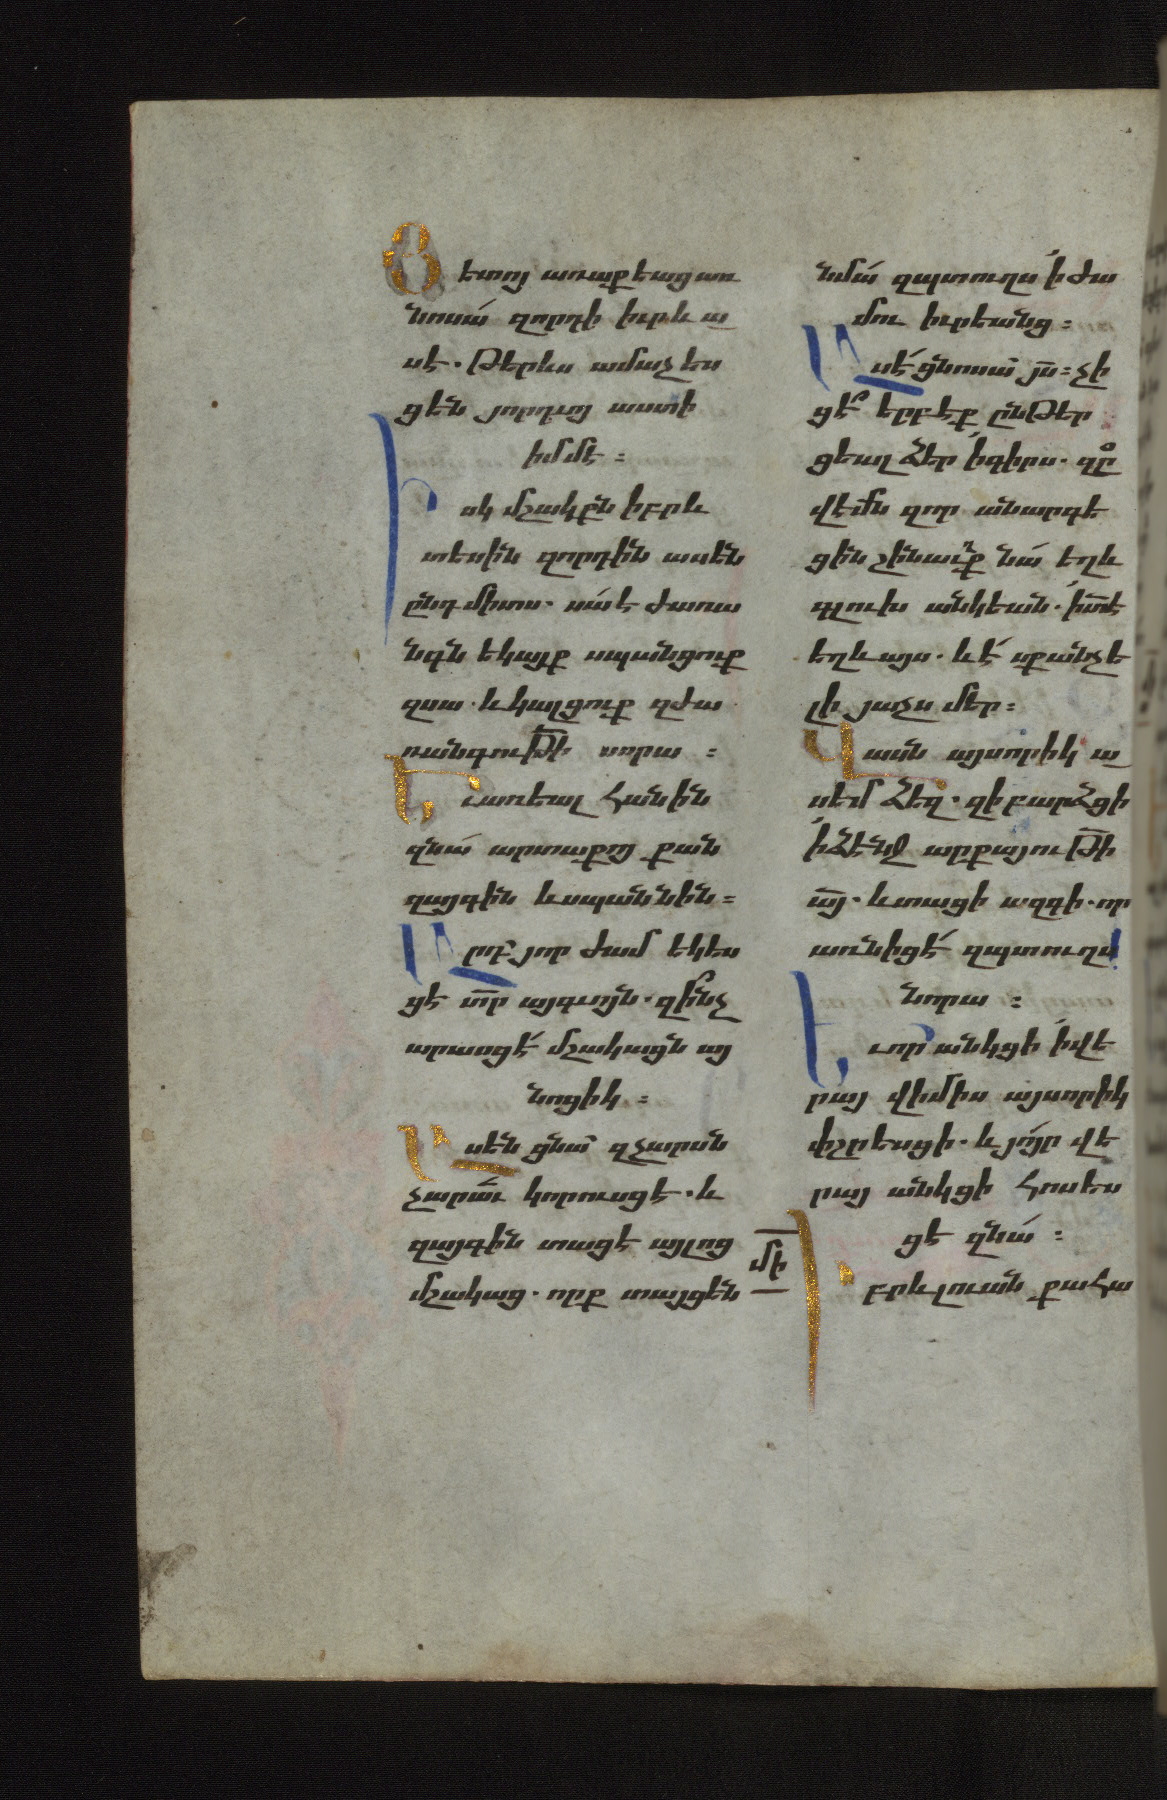 Յետոյ առաքեաց առ
նոսա՛ զորդի իւր և ա
սէ. Թերևս ամաչես
ցեն յորդւոյ աստի
իմմէ։
Իսկ մշակքն իբրև
տեսին զորդին ասեն
ընդ միտս. սա՛ է ժառա
նգն եկայք սպանցուք
զսա. և կալցուք զժա
ռանգութի նորա։
Եւ առեալ հանին
զնա՛ արտաքոյ քան
զայգին և սպանին։
Արդ՝ յոր ժամ եկես
ցէ տր այգւոյն. զի՞նչ
արասցէ՛ մշակացն այ
նոցիկ։
Ասեն ցնա՝ զչարսն
չարա՛ւ կորուսցէ. և
զայգին տացէ այլոց
մշակաց. որք տայցեն
նմա՛ զպտուղս ի՛ ժա
մու իւրեանց։
Ասէ՛ ցնոսա՝ յս։ չի
ցէ՞ երբէք ընթեր
ցեալ ձեր ի՛ գիրս. զի
վէմն զոր անարգե
ցին շինաւղք նա՛ եղև
գլուխ անկեան. ի՛ տէ
եղև այս. և է՛ սքանչե
լի յաչս մեր։
Վասն այսորիկ ա
սեմ ձեզ. զի բարձցի
ի՛ ձէնջ արքայութի
այ. և տացի ազգի. որ
առնիցէ՛ զպտուղս
նորա։
Եւ որ՝ անկցի ի՛ վե
րայ վիմիս այսորիկ
փշրեսցի. և յո՛յր վե
րայ անկցի հոսես
ցէ զնա՛։
մի
Իբրև լուան քահա